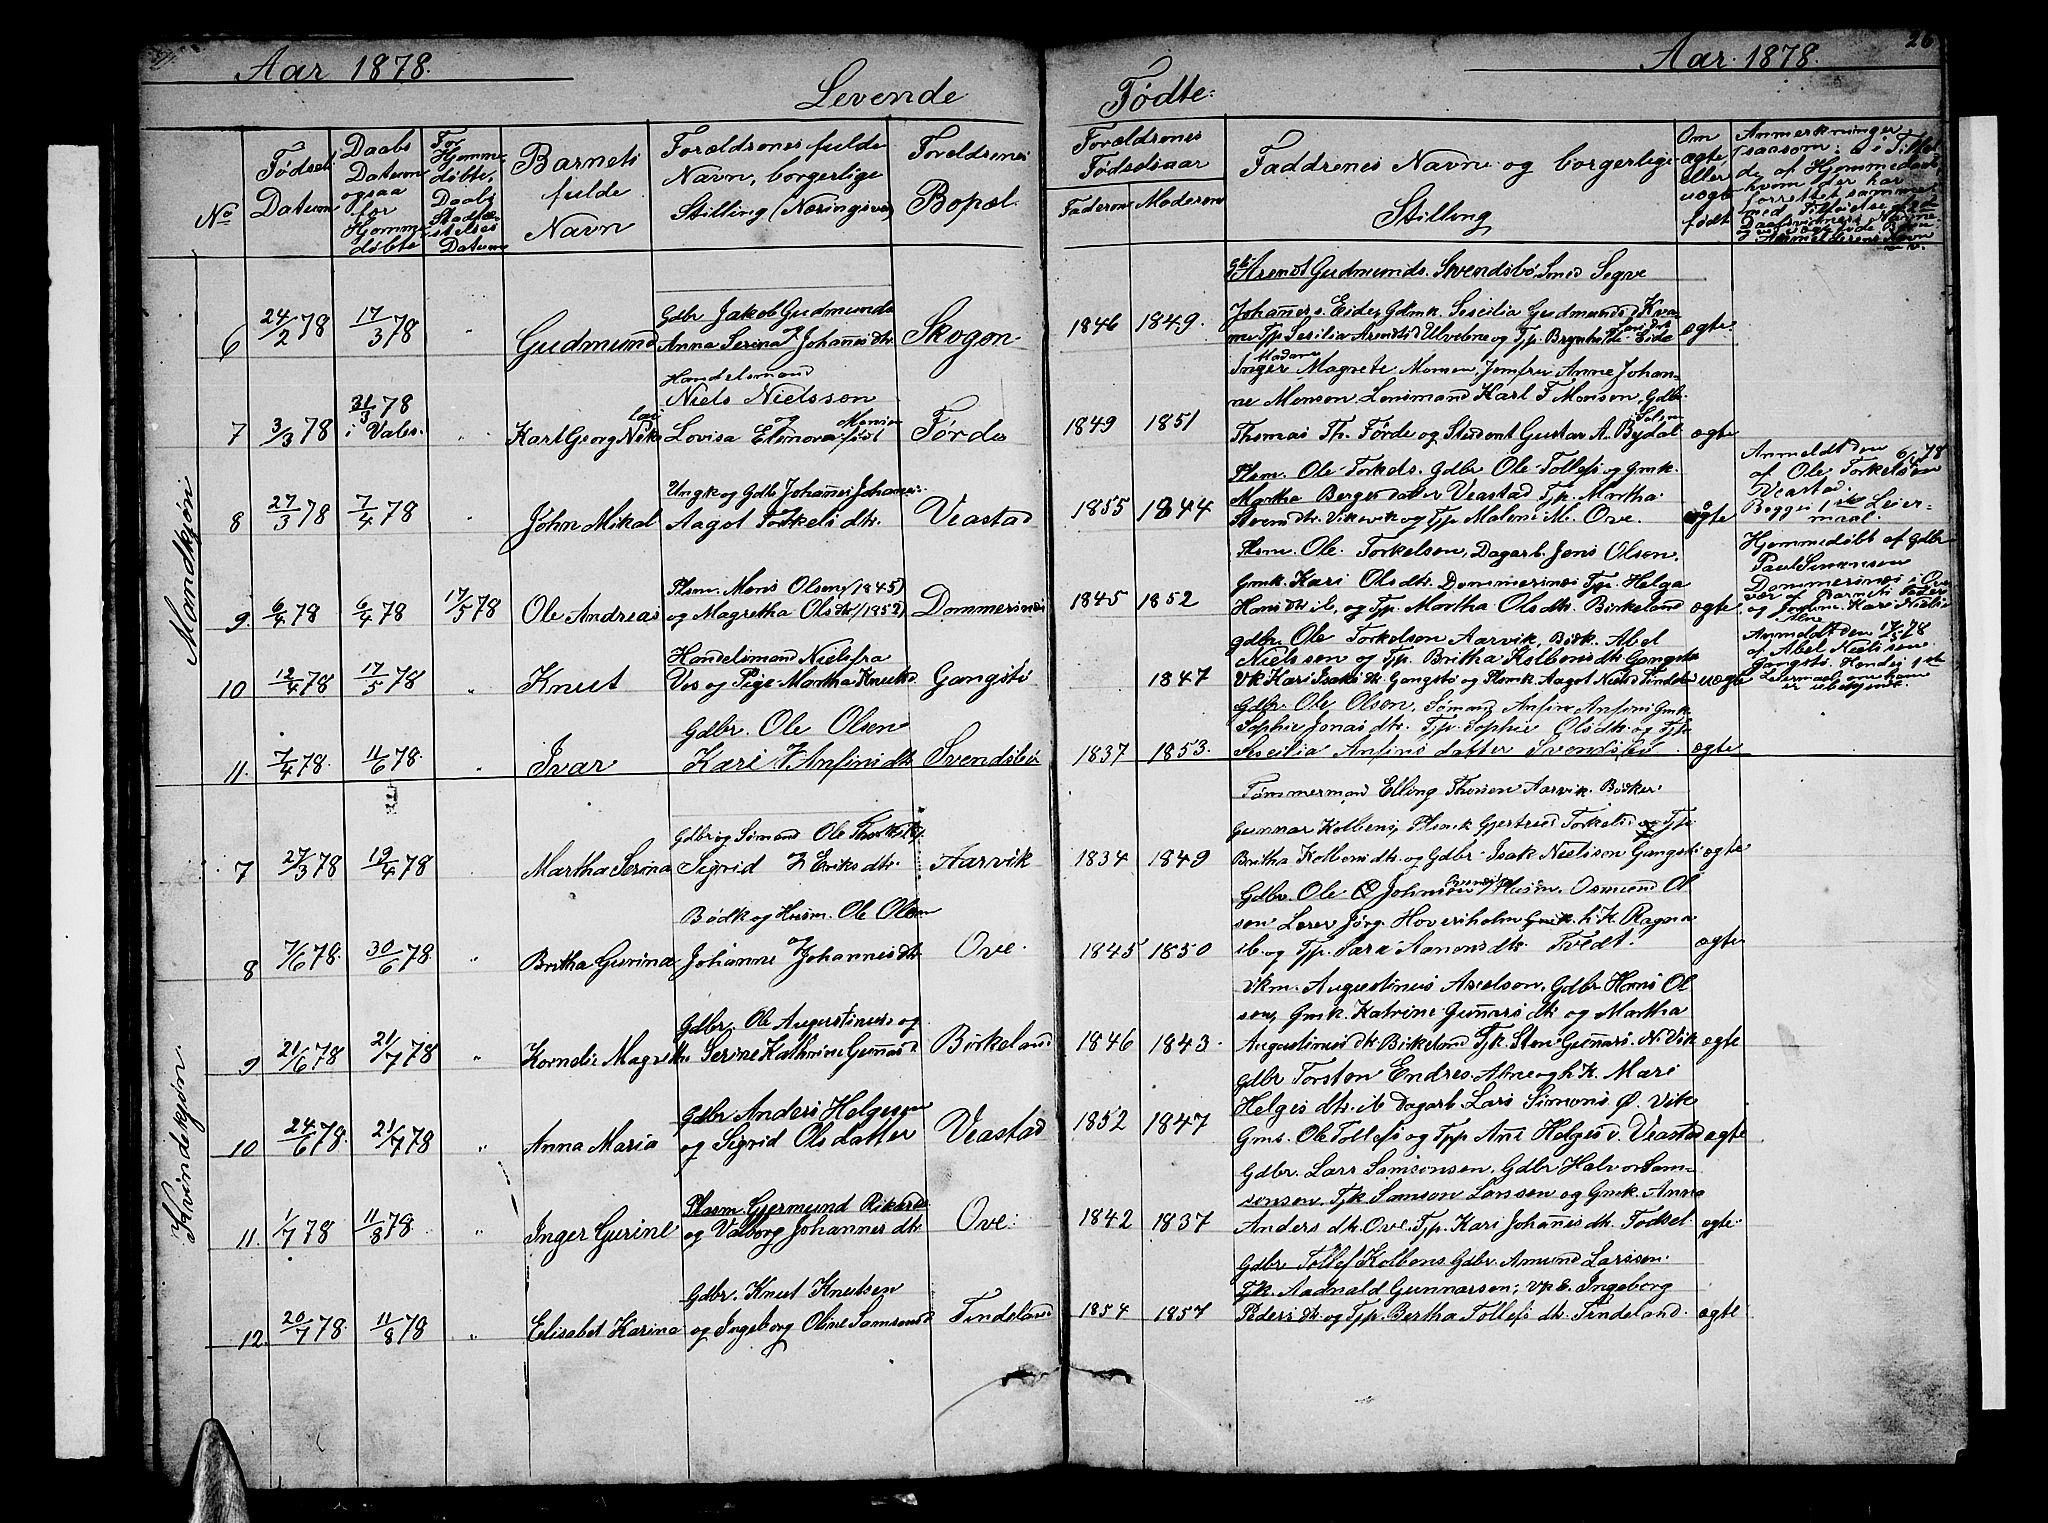 Aar 1878.
Levende
Fødte.
Aar 1878.
26
No
Fødsels Datum
Daabs Datum ogsaa for Hjemmedøbte
For Hjemmedøbte, Daabs Stadfæstelses Datum
Barnets fulde Navn
Forældrenes fulde Navn, borgerlige Stilling (Næringsvei)
Forældrenes Bopæl.
Forældrenes Fødselsaar
Faderens Moderens
Faddrenes Navne og borgerlige Stilling
Om ægte eller uægte født
Anmerkninger saasom:
Mandkjøn
6 24/2 78 17/3 78 " Gudmund
Gdbr Jakob Gudmunds
Anna Serina Johannesdtr.
Skogen
1846 1849.
Arendt Gudmunds. Svendsbø
Johannes. Eide, Gdmk. Sesilia Gudmundsd
ægte
7 3/3 78 31/3 78 i Vales. " Karl Georg
Handelsmand
Niels Nielssen
og
Lovisa født
Førde
1849 1851
Madam
Inger Magrete Monsen, Jomfru Anne Johan-
ne Monsen, Lensmand Karl F Monsen, Gdbr.
Thomas Th. Førde og Student Gustav A. Bydal
ægte
8 27/3 78 7/4 78 " John Mikal
Ungk og Gdbs Johannes Johannes.
Aagot Torkelsdtr.
Veastad
1855 1844
Plsm. Ole Torkels. Gdbr Ole Tollefs og Gmk.
Martha Bergesdatter Veastad Tjp. Martha
Svendsdtr. Vikevik og Tjp Malene M. Ove.
Anmeldt den 6/4 78
af Ole Torkelsen
Veastad.
Begges 1ste Leier-
maal.
9 6/4 78 6/4 78 17/5 78 Ole Andreas
Plsm. Mons Olsen (1845)
og Magretha Olsdtr (1852)
Dommersnæs
1845 1852
Plsm. Ole Torkelsen, Dagarb. Jens Olsen,
Gmk. Kari Olsdtr. Dommersnæs Tjp. Helga
Hansdtr ib, og Tjp. Martha Olsdtr. Birkeland
ægte
Hjemmedøbt af Gdbr
Paul Simonsen
Dommersnæs i Over
vær af Barnets Fader
10 12/4 78 17/5 78 " Knut
Handelsmand Niels fra
Vos og Pige Martha Knutsd.
Gangstø
1847
Gdbr. Ole Torkelson Aarvik, Bødk. Abel
Nielssen og Tjp. Britha Kolbensdtr Gangstø
Vk Kari Isaksdtr. Gangstø og Plsmk. Aagot Nielsd
uægte
Anmeldt den 17/5 78
af Abel Nielssen
Gangstø. Hendes 1ste
Leiermaal om ham
er ubekjendt.
11. 7/4 78. 11/6 78. " Ivar
Gdbr. Ole Olsen
Kari Anfinsdtr.
Svendsbø
1837 1853.
Gdbr. Ole Olsen, Sømand Anfin Anfins Gmk.
Sophie Jonasdtr. Tjp. Sophie Olsdtr. og Tjp
Sesilia Anfinsdatter Svendsbø
ægte
Kvindekjøn.
7 27/3 78 19/4 78 Martha Serina
Gdbr og Sømand Ole
Sigrid Eriksdtr.
Aarvik
1834 1849
Tømmermand Elling Thorsen Aarvik. Bødker
Gunnar Kolbens, Plsmk Gjertrud Torkelsd og Tjp
Britha Kolbensdtr. og Gdbr. Isak Nielssen Gangstø
ægte
8 7/6 78. 30/6 78. " Britha Gurina
Bødk og Husm. Ole Olsen
Johanne Johannesdtr.
Ove.
1845 1850
Gdbr. Ole Johnsen Husm. Osmund Ol
sen Lærer Jørg. Hoversholm h.K. Ragna
ib. og Tjp. Sara Aanonsdtr. Tvedt.
ægte
9 21/6 78 21/7 78 " Kornelie Magrethe
Gdbr. Ole Augustinus og
Serine Kathrine Gunnarsd
Birkeland
1846 1843.
Vkm. Augustinus Axelson, Gdbr Hans Ol
sen, Gmk. Katrine Gunnarsdtr. og Martha
Augustinusdtr. Birkeland Tjk. Sten Gunnars. N. Vik
ægte
10 24/6 78. 21/7 78 " Anna Maria
Gdbr Anders Helgesen
og Sigrid Olsdatter
Veastad
1852 1847
Gdbr Torsten Endres. Alne og h.K. Mari
Helgesdtr. ib Dagarb. Lars Simons Ø. Vik
Gms. Ole Tollefs og Tjp Ane Helgesd. Veastad
ægte
11. 1/7 78 11/8 78. " Inger Gurine
Plasm Gjermund Rikards
og Valborg Johannesdtr.
Ove.
1842 1837
Gdbr. Lars Samsonsen, Gdbr Halvor Sam-
sonsen, Tjk Samson Larssen og Gmk. Anna
Andersdtr. Ove. Tjp. Kari Johannesdtr. Tødsel.
ægte.
12. 20/7 78. 11/8 78 " Elisabet Karina
Gdbr. Knut Knutsen
og Ingeborg Oline Samsonsd
Tindeland
1854 1857
Gdbr Tollef Kolbens Gdbr. Amund Larssen.
Tjk. Aadnald Gunnarsen; Vpe. Ingeborg
Pedersdtr. og Tjp. Bertha Tollefsdtr. Tindeland.
ægte